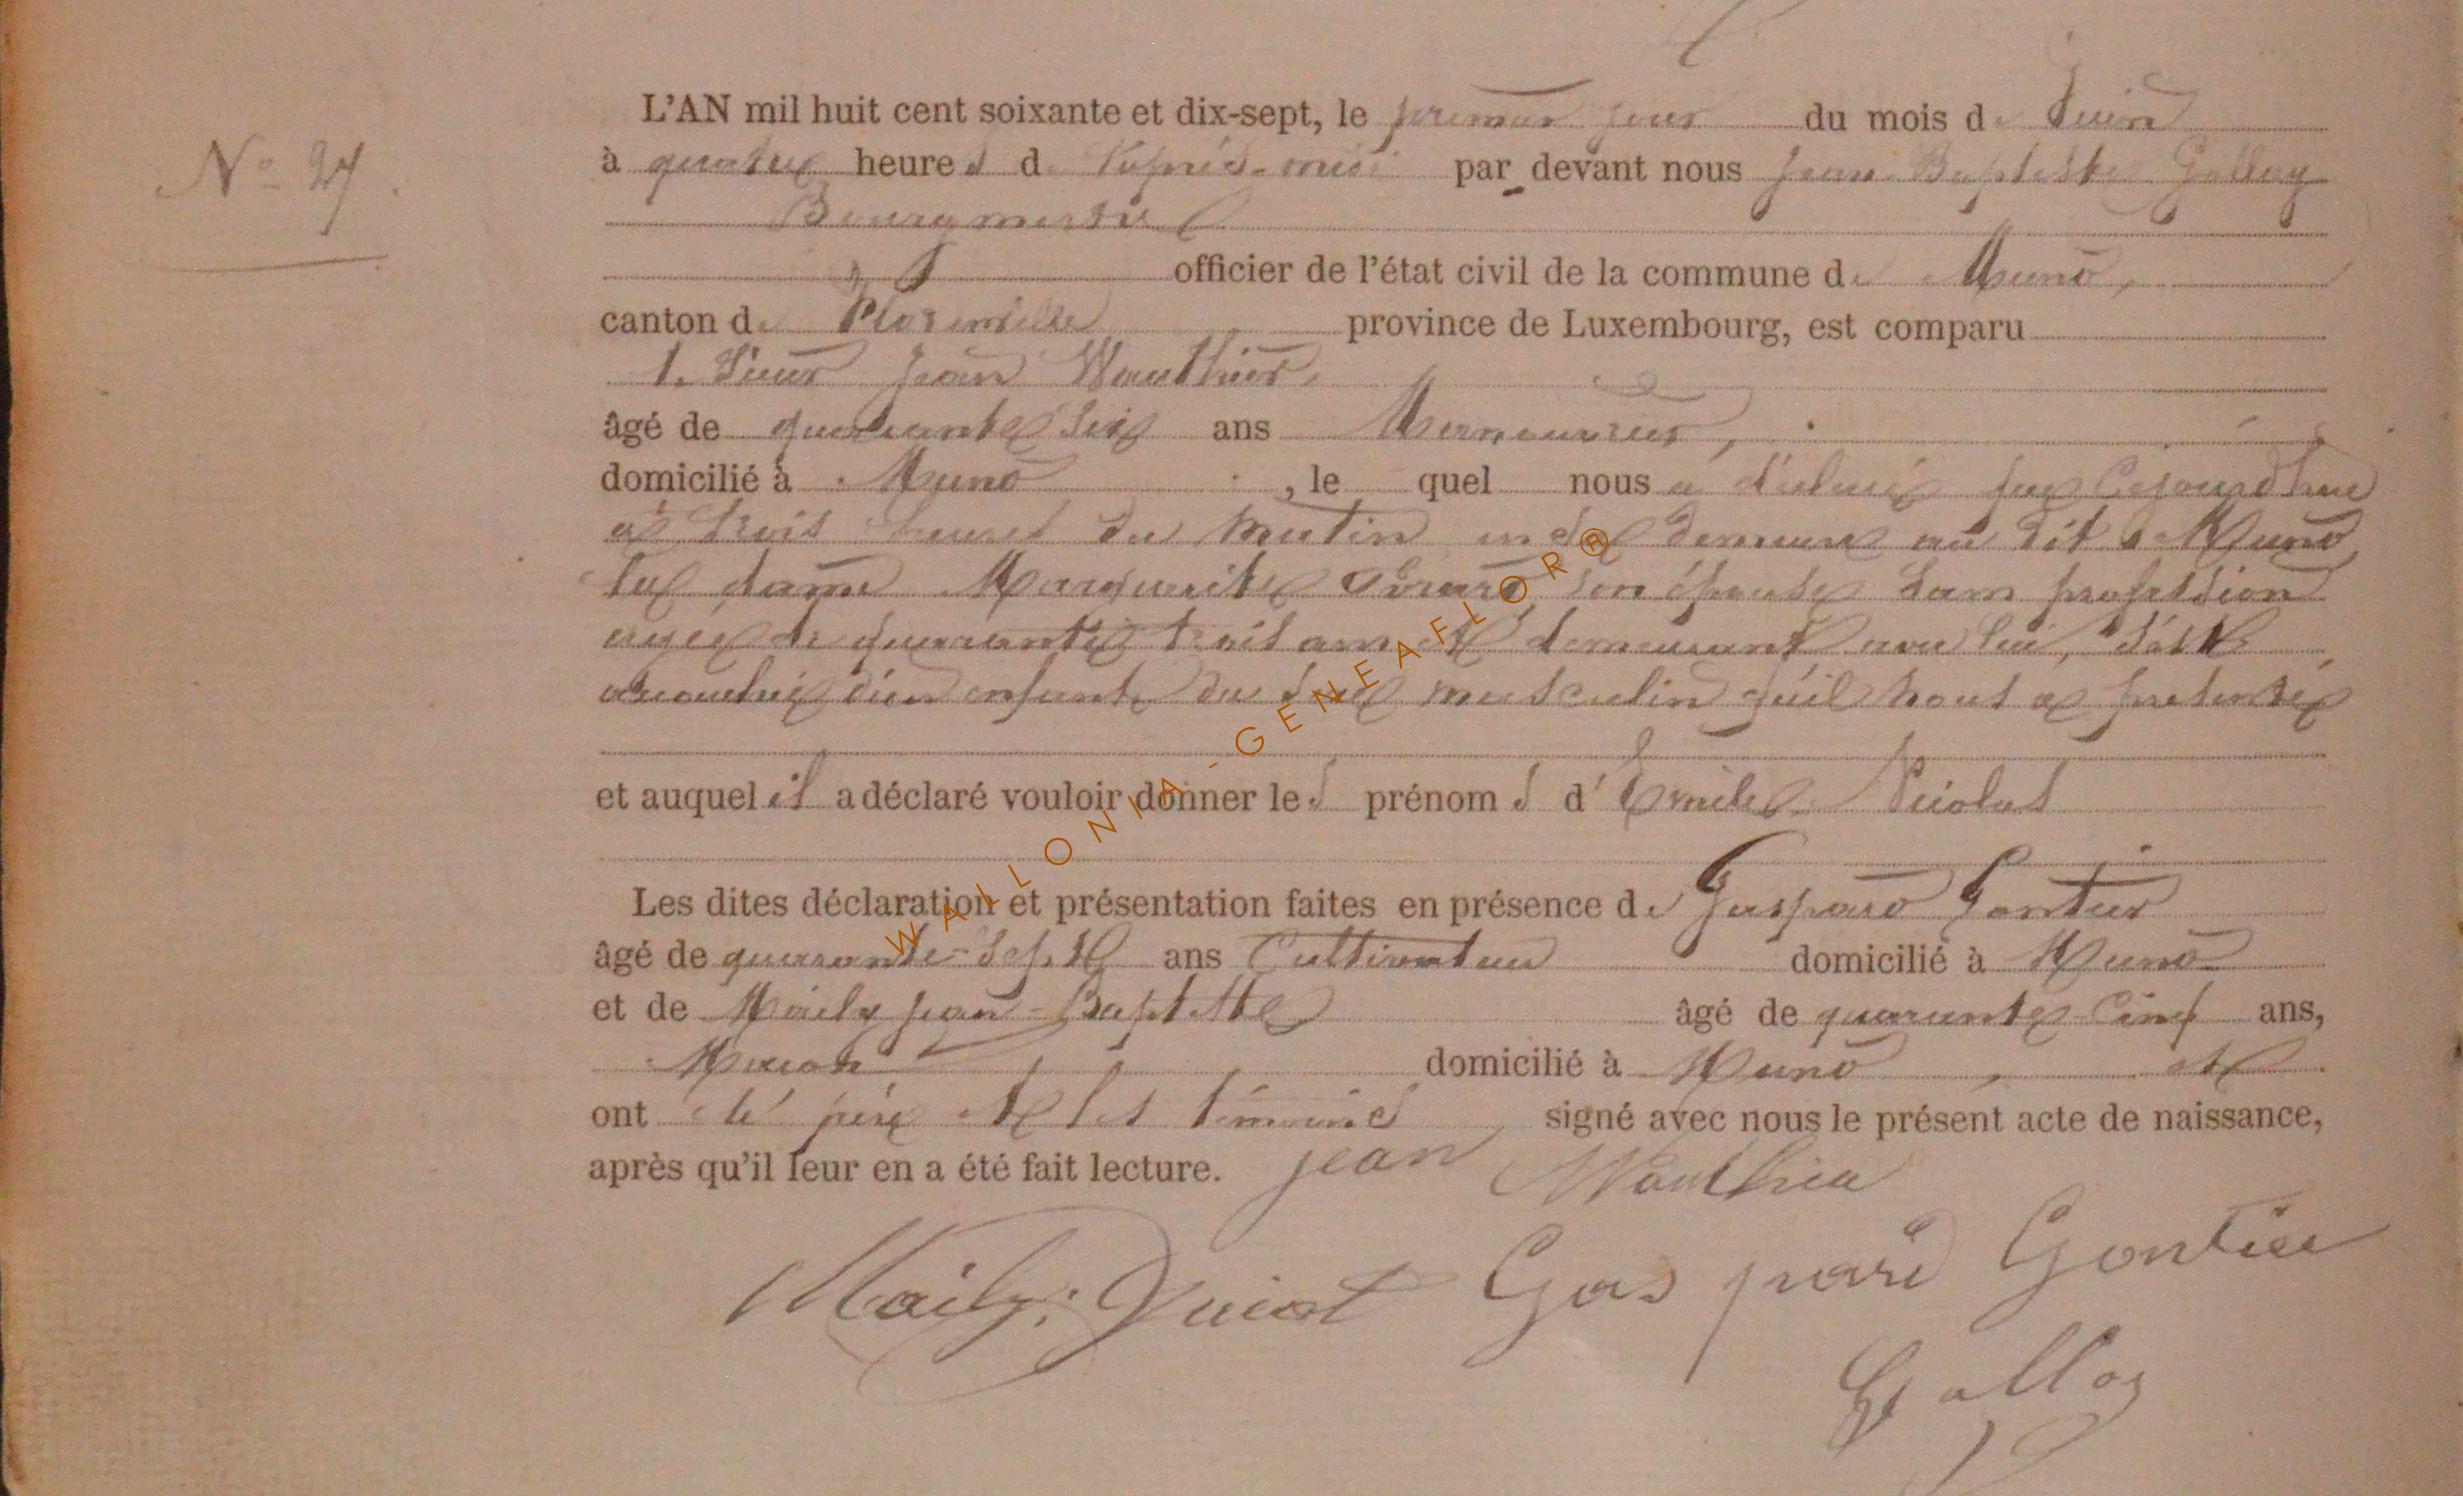 L'AN mil huit cent soixante et dix-sept, le premier jour du mois de Juin
N° 27.
à quatre heures de l'après-midi par devant nous Jean Baptiste Galloy
Bourgmestre
officier de l'état civil de la commune de Muno,
canton de Florenville province de Luxembourg, est comparu
1. Sieur Jean Wauthier,
âgé de quarante six ans Manouvrier,
domicilié à Muno, le quel nous a déclaré que Cejourd'hui
à trois heures du matin en sa demeure au dit Muno
la dame Marguerite son épouse sans profession
agée de quarante trois ans et demeurant avec lui, s'est
accouchée d'un enfant du sexe masculin qu'il nous a présenté
et auquel il a déclaré vouloir donner les prénoms d'Emile Nicolas
Les dites déclaration et présentation faites en présence de Gaspard Gontier
âgé de quarante-sept ans Cultivateur domicilié à Muno
et de Maily Jean-Baptiste âgé de quarante Cinq ans,
Macon domicilié à Muno, et
ont le père et les témoins signé avec nous le présent acte de naissance,
après qu'il leur en a été fait lecture. jean Wauthier
Maily: Gaspard Gontier
Galloy
WALLONIA-GENEAFLOR®